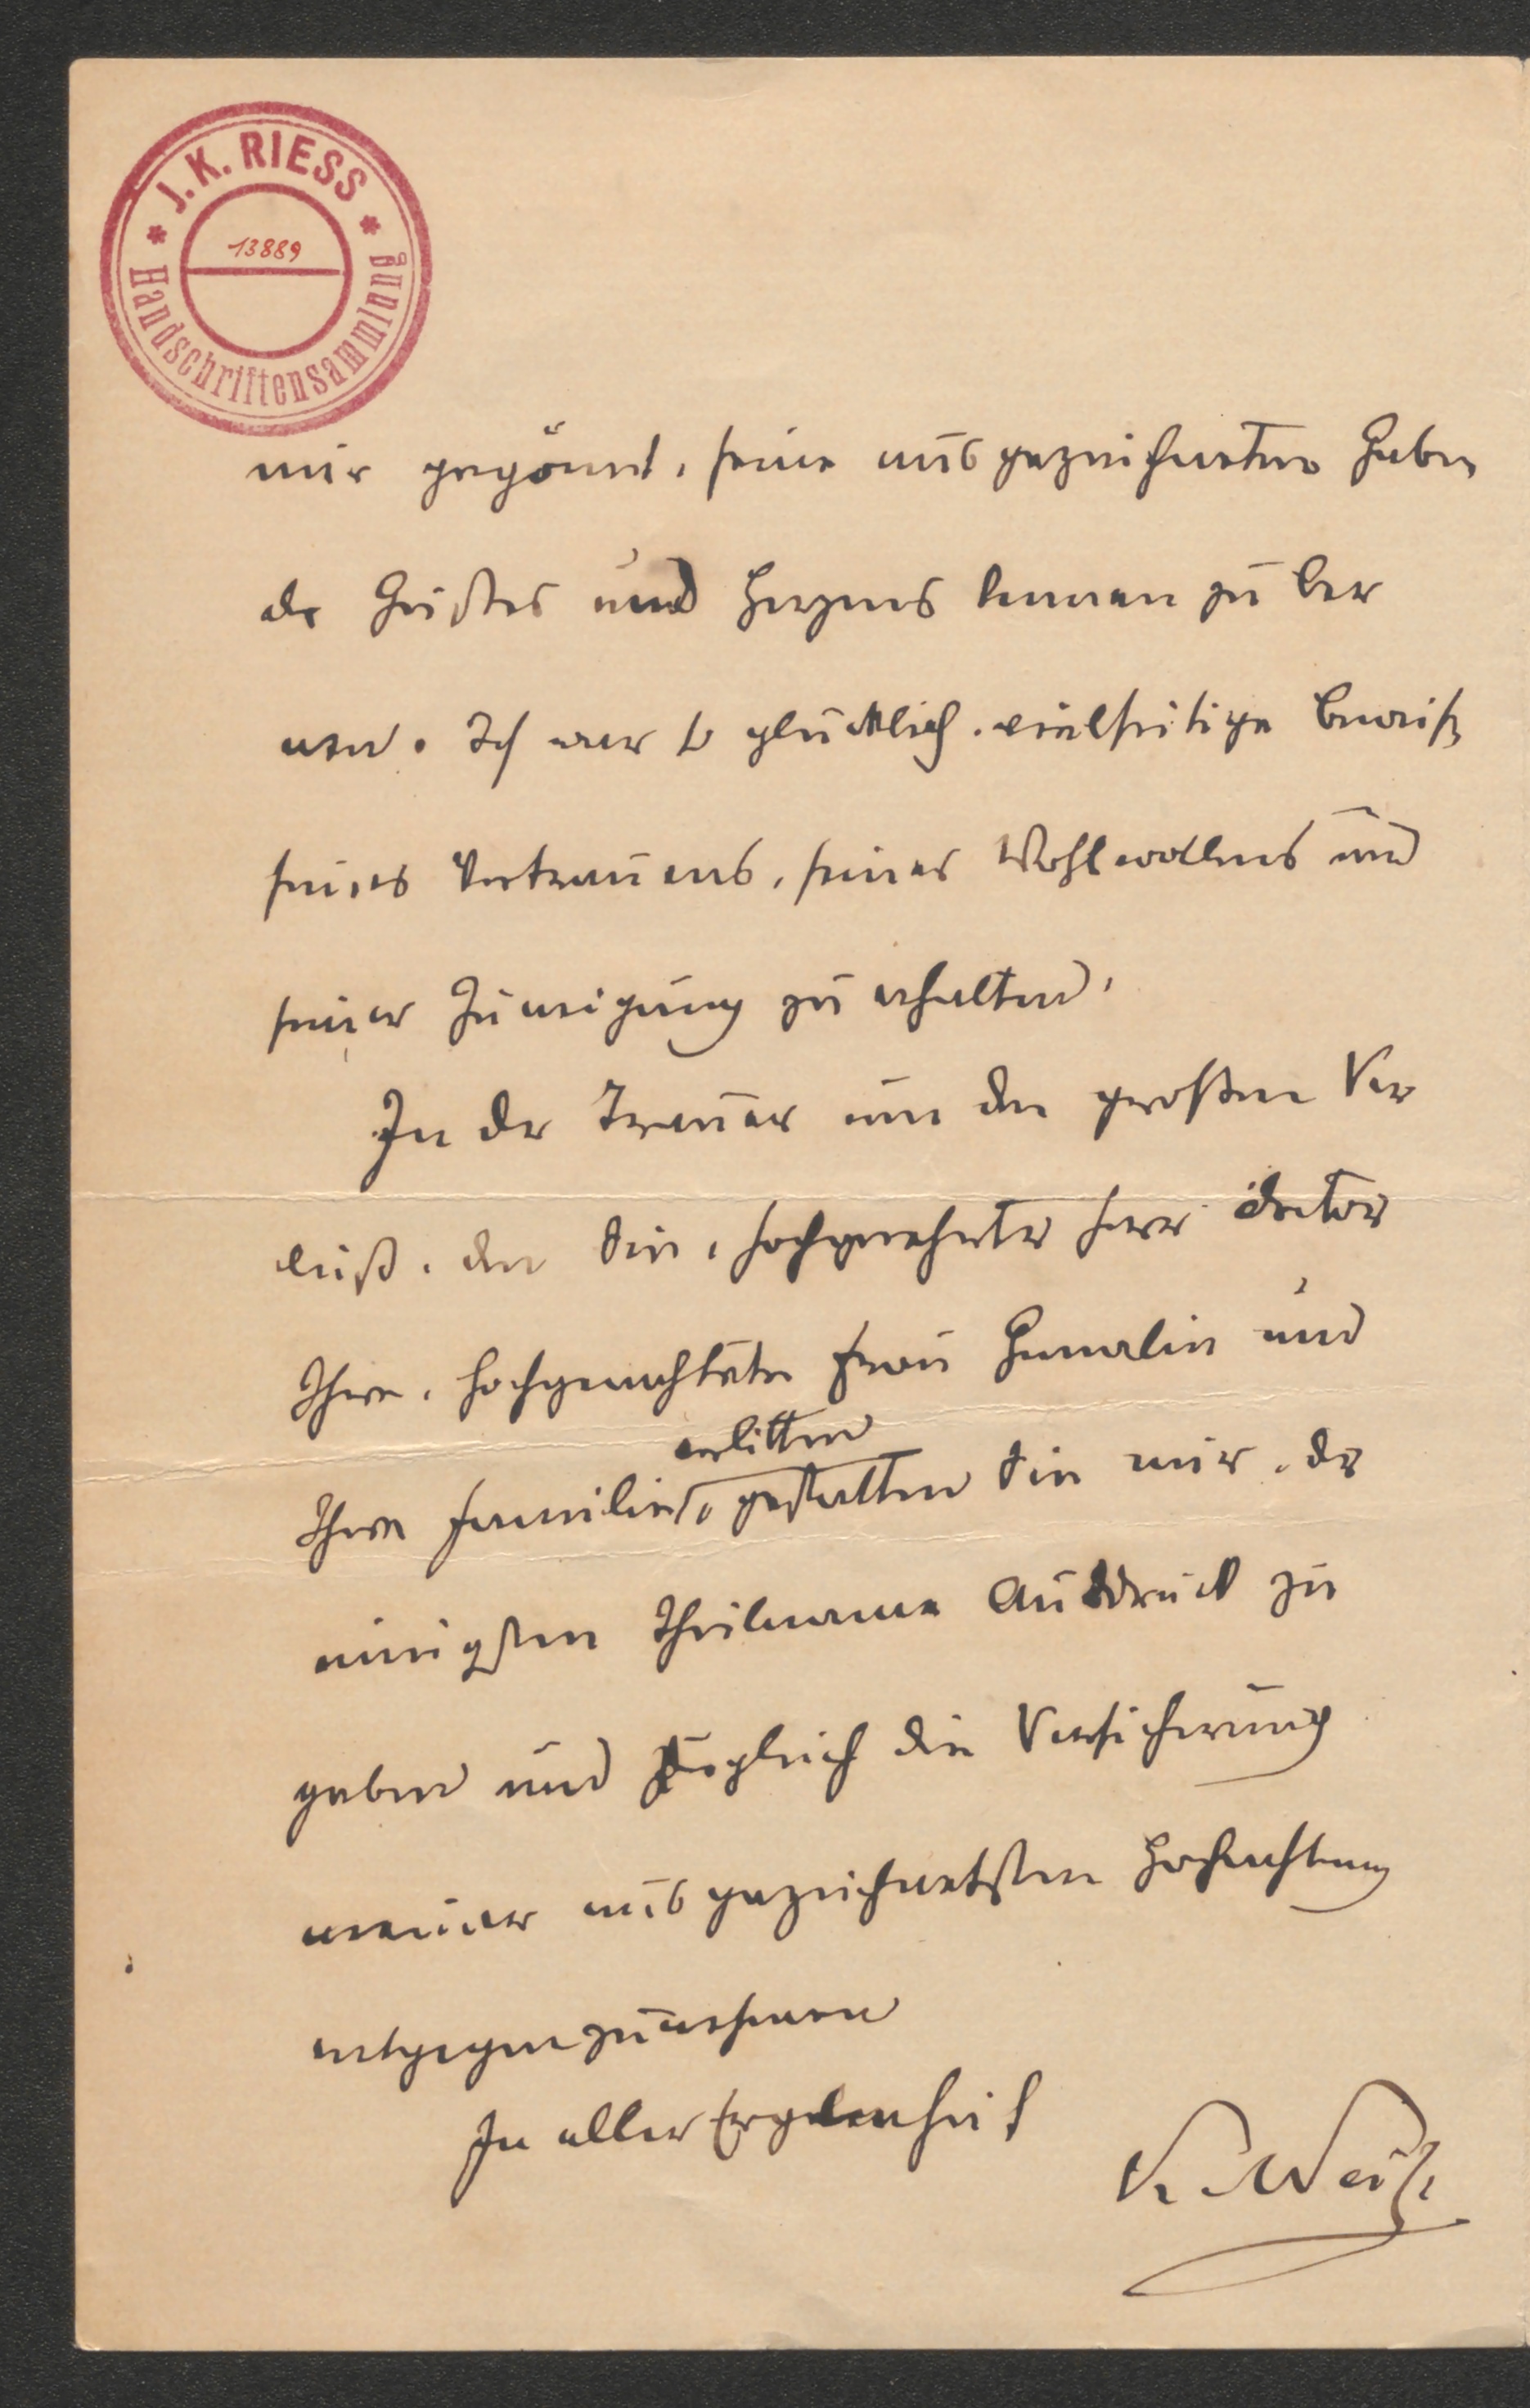 J. K. RIESS
13889
Handschriftensammlung
mir gegönnt, seine ausgezeichneten Gaben
des Geistes und Herzens kennen zu ler
nen. Ich war so glücklich, vielseitige Beweise
seines Vertrauens, seines Wohlwollens und
seiner Zuneigung zu erhalten.
In der Trauer um den großen Ver
lust, den Sie, hochgeehrter Herr Doctor
Ihre, hochgeachtete Frau Gemalin und
erlitten
Ihre Familie, gestatten Sie mir, der
innigsten Theilname Ausdruck zu
geben und zugleich die Versicherung
meiner ausgezeichnetsten Hochachtung
entgegenzunehmen
In aller Ergebenheit
K. Weiß